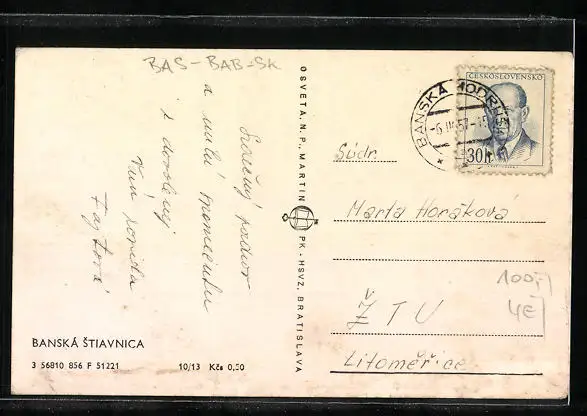 BAS-BAB-SK
Srdečný pozdrav
a milú spomienku
z dovolenej
Vám posiela
BANSKÁ ŠTIAVNICA
3 56810 856 F 51221 10/13 Kčs 0,50
OSVETA, N. P., MARTIN PK - HSVZ, BRATISLAVA
BANSKÁ HODRUŠA
ČESKOSLOVENSKO
30h
Súdr.
Marta Horáková
ŽTU
Litoměřice
100,-
4€